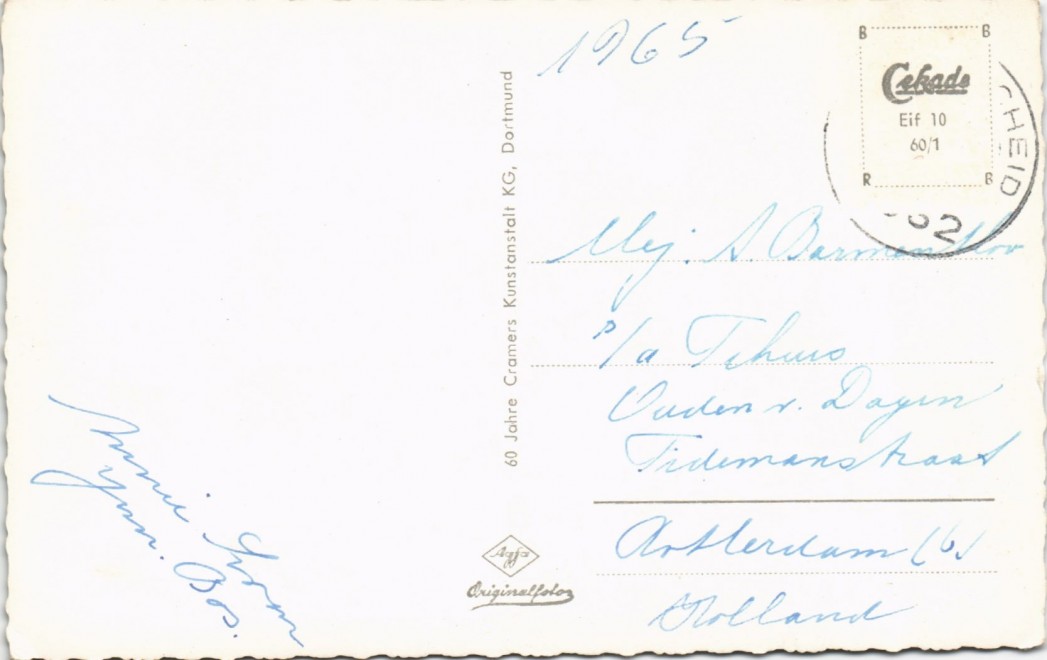 1965
B B
Cekade
Eif 10
60/1
R B
CHEID
62
60 Jahre Cramers Kunstanstalt KG, Dortmund
Mej. A. Barmentlov
p/a Tehuis
Ouden v. Dagen
Tidemanstraat
Rotterdam (6)
Holland
Agfa
Originalfotos
Annie
Bos.